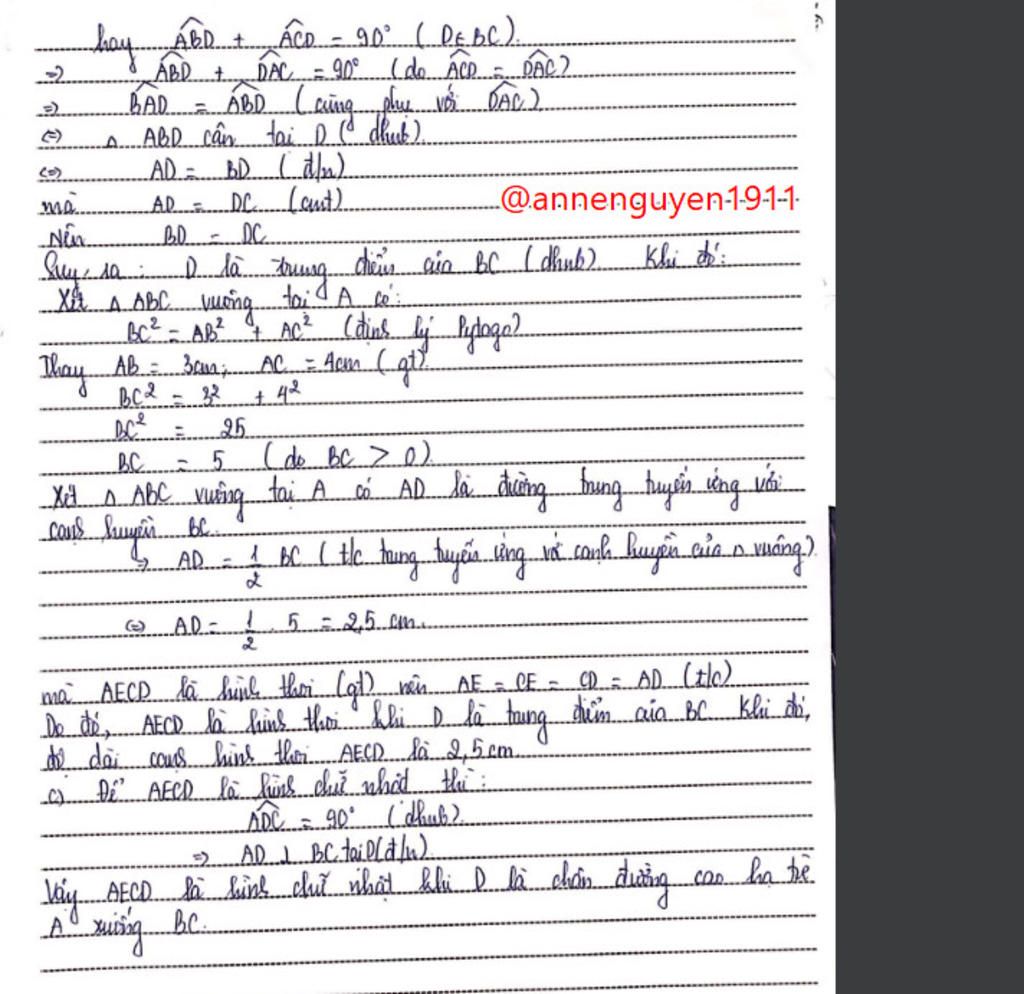 hay ABD̂ + ACD̂ = 90° (D∈BC).
=> ABD̂ + DAĈ = 90° (do ACD̂ = DAĈ)
=> BAD̂ = ABD̂ (cùng phụ với DAĈ)
<=> △ ABD cân tại D (dhnb).
<=> AD = BD (đ/n)
mà AD = DC (cmt)
@annenguyen1911
Nên BD = DC
Suy ra : D là trung điểm của BC (dhnb) Khi đó:
Xét △ ABC vuông tại A có:
BC² = AB² + AC² (định lý Pytago)
Thay AB = 3cm; AC = 4cm (gt)
BC² = 3² + 4²
BC² = 25
BC = 5 (do BC > 0)
Xét △ ABC vuông tại A có AD là đường trung tuyến ứng với
cạnh huyền BC.
=> AD = 1/2 BC (t/c trung tuyến ứng với cạnh huyền của △ vuông)
<=> AD = 1/2 . 5 = 2,5 cm.
mà AECD là hình thoi (gt) nên AE = CE = CD = AD (t/c)
Do đó, AECD là hình thoi khi D là trung điểm của BC Khi đó,
độ dài cạnh hình thoi AECD là 2,5cm
c) Để AECD là hình chữ nhật thì:
ADĈ = 90° (dhnb)
=> AD ⊥ BC tại D (đ/n)
Vậy AECD là hình chữ nhật khi D là chân đường cao hạ từ
A xuống BC.